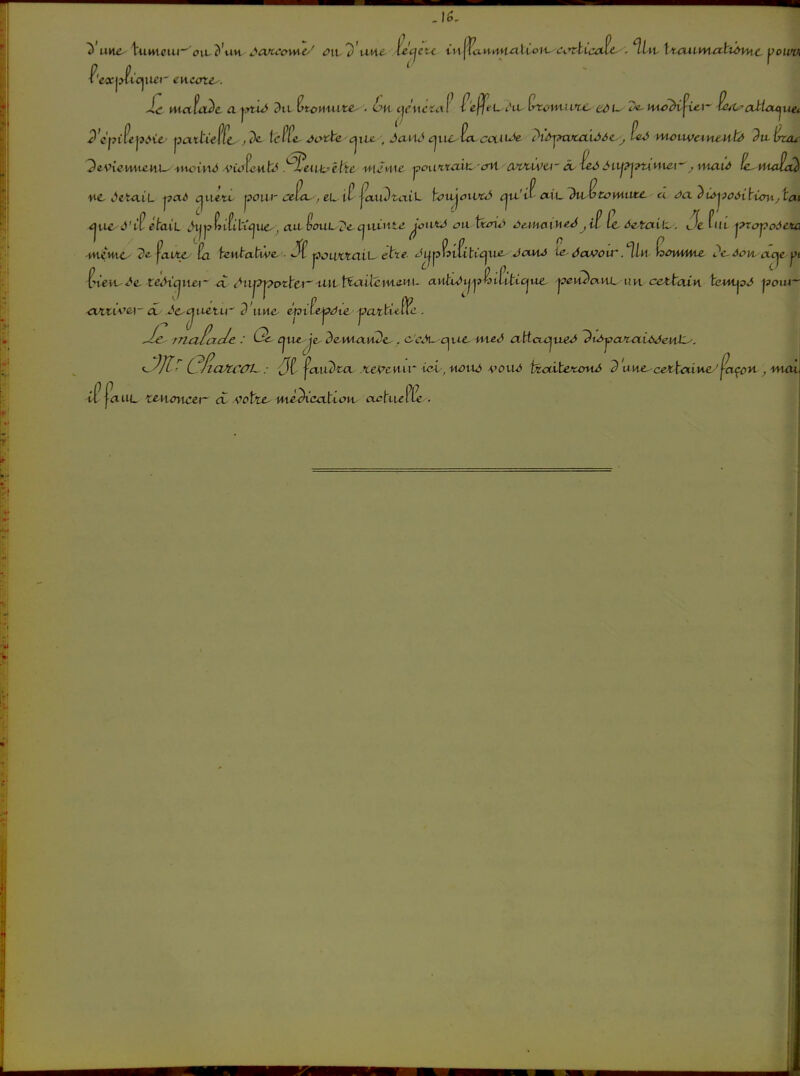 _ 16 _
d'une tumeur ou d'un sarcome ou d'une légère inflammation corticale. Un traumatisme pourra
l'expliquer encore.
Le malade a pris du bromure. En général l'effet du bromure est de modifier les attaques
d'épilepsie partielle, de telle sorte que, sans que la cause disparaisse, les mouvements du bras
deviennent moins violents. Peut-être même pourrait-on arriver à les supprimer, mais le malade
ne serait pas guéri pour cela, et il faudrait toujours qu'il ait du bromure à sa disposition, tan
que s'il était syphilitique, au bout de quinze jours ou trois semaines, il le serait. Je lui proposera
même de faire la tentative. Il pourrait être syphilitique sans le savoir. Un homme de son âge p
bien se résigner à supporter un traitement antisyphilitique pendant un certain temps pour
arriver à se guérir d'une épilepsie partielle.
Le malade : Ce que je demande, c'est que mes attaques disparaissent.
Mr Charcot : Il faudra revenir ici, nous vous traiterons d'une certaine façon, mai
il faut renoncer à votre médication actuelle.